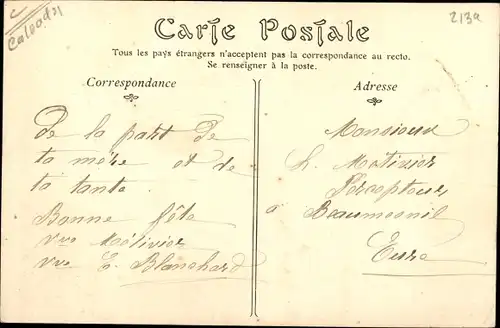 Calvados
213a
Carte Postale
Tous les pays étrangers n'acceptent pas la correspondance au recto.
Se renseigner à la poste.
Correspondance
De la part de
ta mère et de
ta tante
Bonne fête
vve Métivier
vve E. Blanchard
Adresse
Monsieur
h. Métivier
Percepteur
à Beaumesnil
Eure